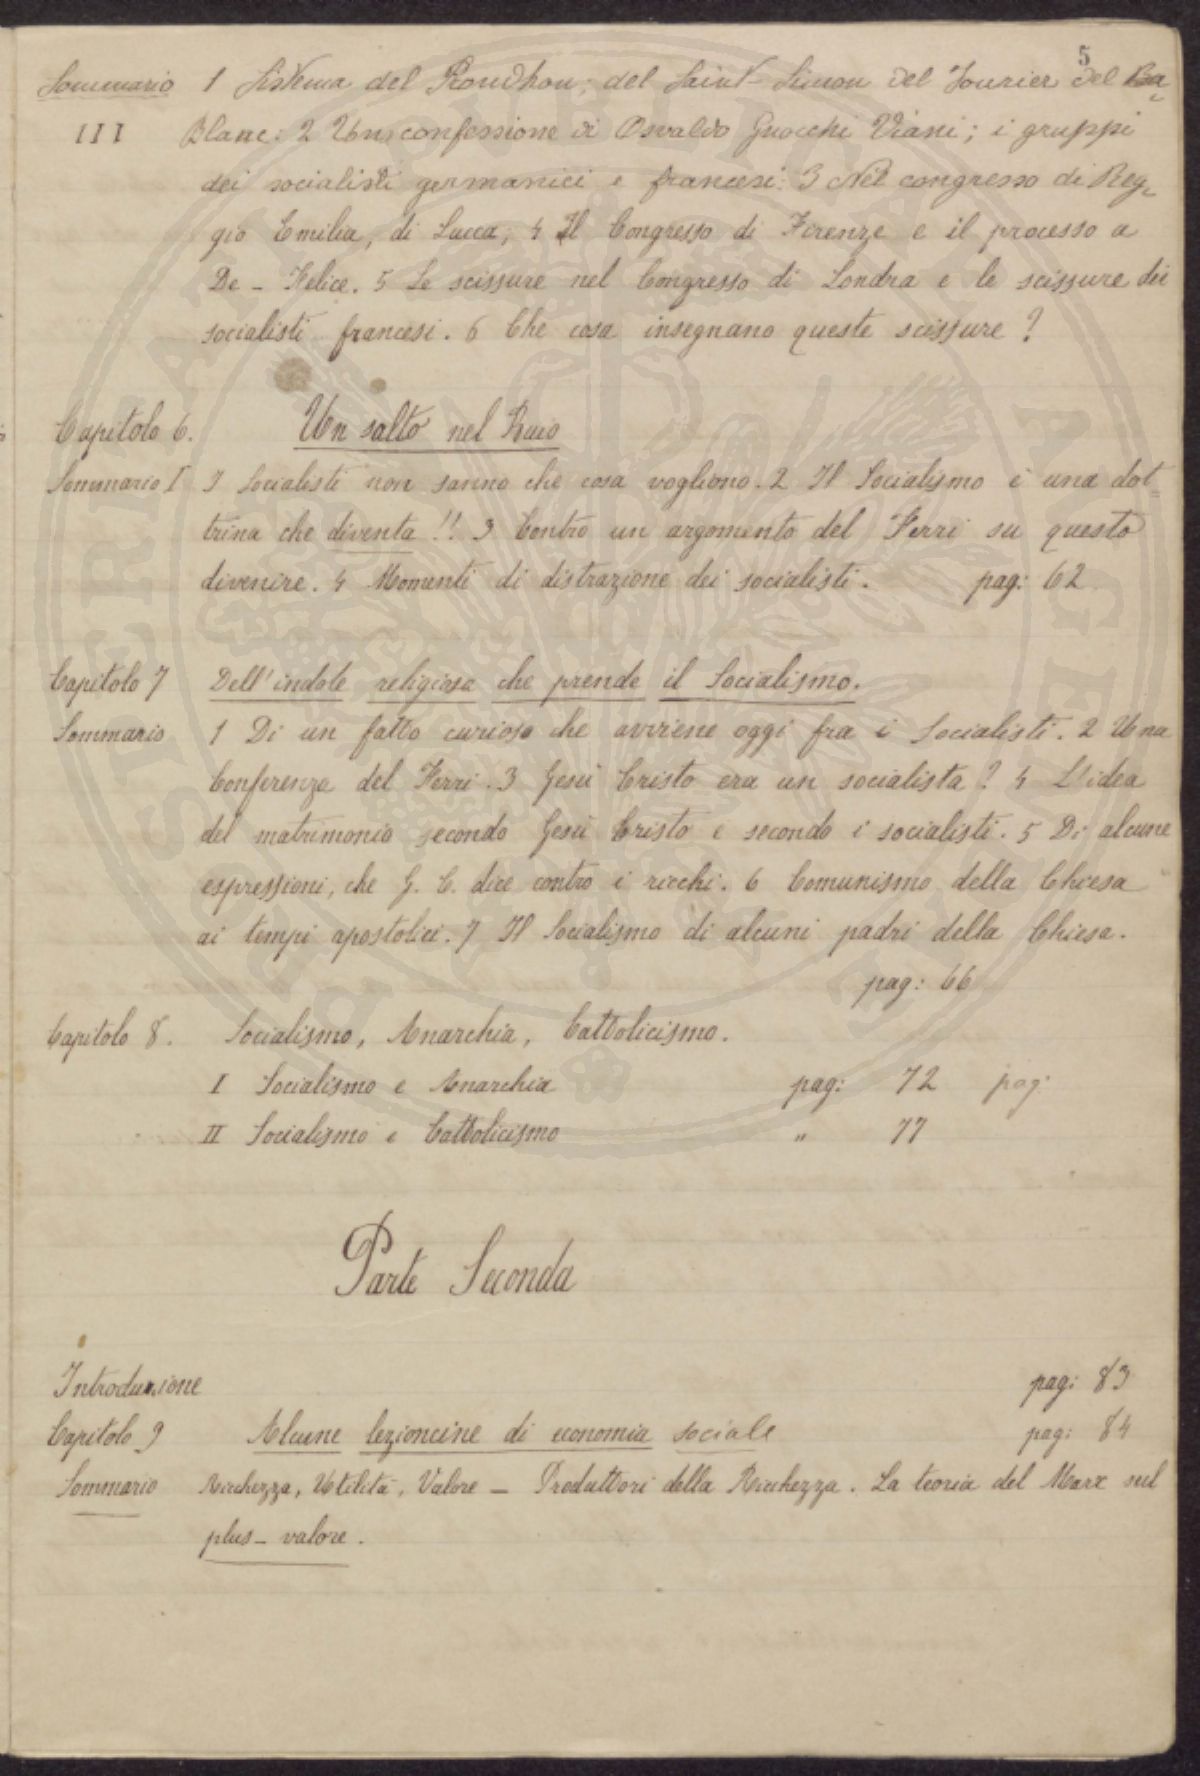 5
Sommario 1 Sistema del Proudhon; del Saint-Simon del Fourier del
III Blanc. 2 Una confessione di Osvaldo Gnocchi Viani; i gruppi
dei socialisti germanici e francesi. 3 Nel congresso di Reg-
gio Emilia, di Lucca; 4 Il Congresso di Firenze e il processo a
De - Felice. 5 Le scissure nel Congresso di Londra e le scissure dei
socialisti francesi. 6 Che cosa insegnano queste scissure?
Capitolo 6. Un salto nel Buio
Sommario I I Socialisti non sanno che cosa vogliono. 2 Il Socialismo è una dot=
trina che diventa!! 3 Contro un argomento del Ferri su questo
divenire. 4 Momenti di distrazione dei socialisti. pag: 62
Capitolo 7 Dell'indole religiosa che prende il Socialismo.
Sommario 1 Di un fatto curioso che avviene oggi fra i Socialisti. 2 Una
Conferenza del Ferri. 3 Gesù Cristo era un socialista? 4 L'idea
del matrimonio secondo Gesù Cristo e secondo i socialisti. 5 Di alcune
espressioni, che G. C. dice contro i ricchi. 6 Comunismo della Chiesa
ai tempi apostolici. 7 Il Socialismo di alcuni padri della Chiesa.
pag: 66
Capitolo 8. Socialismo, Anarchia, Cattolicismo.
I Socialismo e Anarchia pag: 72 pag:
II Socialismo e Cattolicismo " 77
Parte Seconda
Introduzione pag: 83
Capitolo 9 Alcune lezioncine di economia sociale pag: 84
Sommario Ricchezza, Utilità, Valore - Produttori della Ricchezza. La teoria del Marx sul
plus-valore.